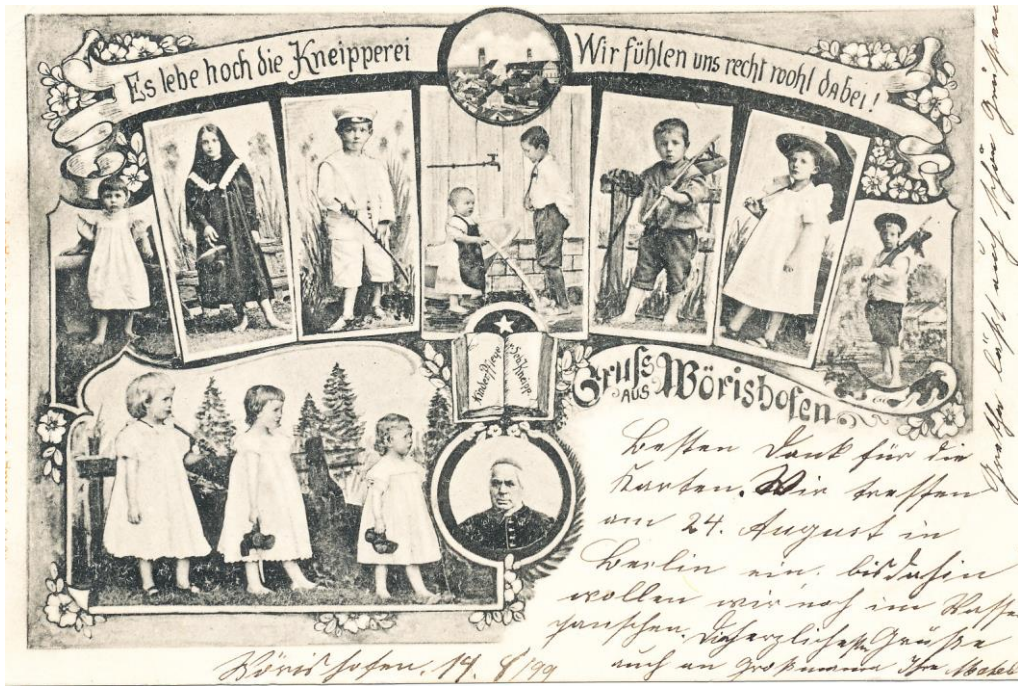 Es lebe hoch die Kneipperei
Wir fühlen uns recht wohl dabei!
Kinder Pflege
Seb. Kneipp
Gruss
AUS Wörishofen
Besten Dank für die
Karten. Wir treffen
am 24. August in
Berlin ein. bis dahin
wollen wir noch im Wasser
panschen. Die herzlichsten Grüße
auch an Großmama Ihre
Wörishofen. 14. 8/99
läßt auch schön grüßen